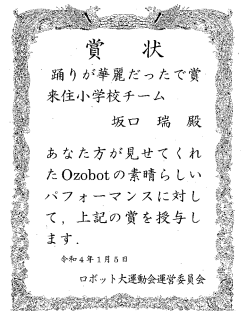 賞状
踊りが華麗だったで賞
来住小学校チーム
坂口 瑞 殿
あなた方が見せてくれ
たOzobotの素晴らしい
パフォーマンスに対し
て，上記の賞を授与し
ます．
令和4年1月5日
ロボット大運動会運営委員会